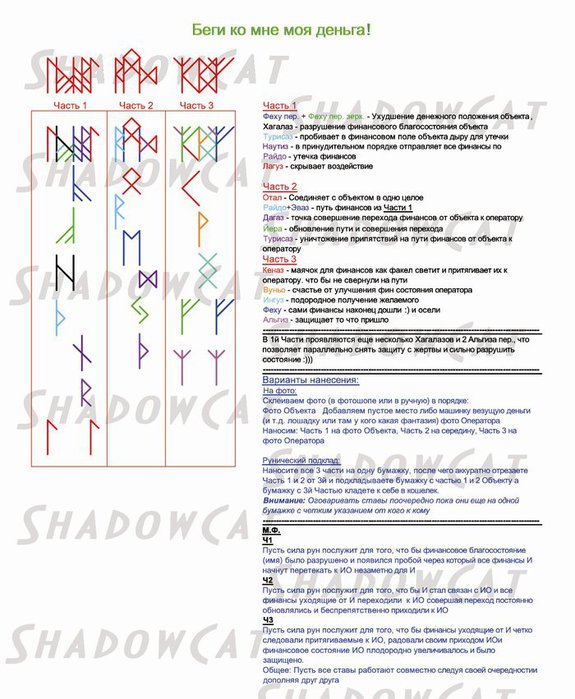 Беги ко мне моя деньга!
SHADOWCAT
Часть 1 Часть 2 Часть 3
Часть 1
Феху пер. + Феху пер. зерк. - Ухудшение денежного положения объекта ,
Хагалаз - разрушение финансового благосостояния объекта
Турисаз - пробивает в финансовом поле объекта дыру для утечки
Наутиз - в принудительном порядке отправляет все финансы по
Райдо - утечка финансов
Лагуз - скрывает воздействие
Часть 2
Отал - Соединяет с объектом в одно целое
Райдо+Эваз - путь финансов из Части 1
Дагаз - точка совершения перехода финансов от объекта к оператору
Йера - обновление пути и совершения перехода
Турисаз - уничтожение припятствий на пути финансов от объекта к
оператору
Часть 3
Кеназ - маячок для финансов как факел светит и притягивает их к
оператору. что бы не свернули на пути
Вуньо - счастье от улучшения фин состояния оператора
Ингуз - подородное получение желаемого
Феху - сами финансы наконец дошли :) и осели
Альгиз - защищает то что пришло
В 1й Части прояявляются еще несколько Хагалазов и 2 Альгиза пер., что
позволяет параллельно снять защиту с жертвы и сильно разрушить
состояние :)))
Варианты нанесения:
На фото:
Склеиваем фото (в фотошопе или в ручную) в порядке:
Фото Объекта Добавляем пустое место либо машинку везущую деньги
(и т.д. лошадку или там у кого какая фантазия) фото Оператора
Наносим: Часть 1 на фото Объекта, Часть 2 на середину, Часть 3 на
фото Оператора
Рунический подклад:
Наносите все 3 части на одну бумажку, после чего аккуратно отрезаете
Часть 1 и 2 от 3й и подкладываете бумажку с частью 1 и 2 Объекту а
бумажку с 3й Частью кладете к себе в кошелек.
Внимание: Оговаривать ставы поочередно пока они еще на одной
бумажке с четким указанием от кого к кому
М.Ф.
Ч1
Пусть сила рун послужит для того, что бы финансовое благосостояние
(имя) было разрушено и появился пробой через который все финансы И
начнут перетекать к ИО незаметно для И
Ч2
Пусть сила рун послужит для того, что бы И стал связан с ИО и все
финансы уходящие от И переходили к ИО совершая переход постоянно
обновлялись и беспрепятственно приходили к ИО
Ч3
Пусть сила рун послужит для того, что бы финансы уходящие от И четко
следовали притягиваемые к ИО, радовали своим приходом ИОи
финансовое состояние ИО плодородно увеличивалось и было
защищено.
Общее: Пусть все ставы работают совместно следуя своей очередности
дополняя друг друга
SHADOWCAT
SHADOWCAT
SHADOWCAT
SHADOWCAT
SHADOWCAT
SHADOWCAT